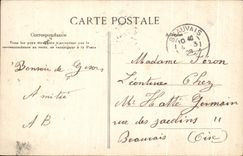 CARTE POSTALE
Correspondance
Bonsoir de Gisors
Amitié
AB
Madame Féron
Léontine Chez
Mr Hatté Germain
rue des jardins "
Beauvais (Oise)